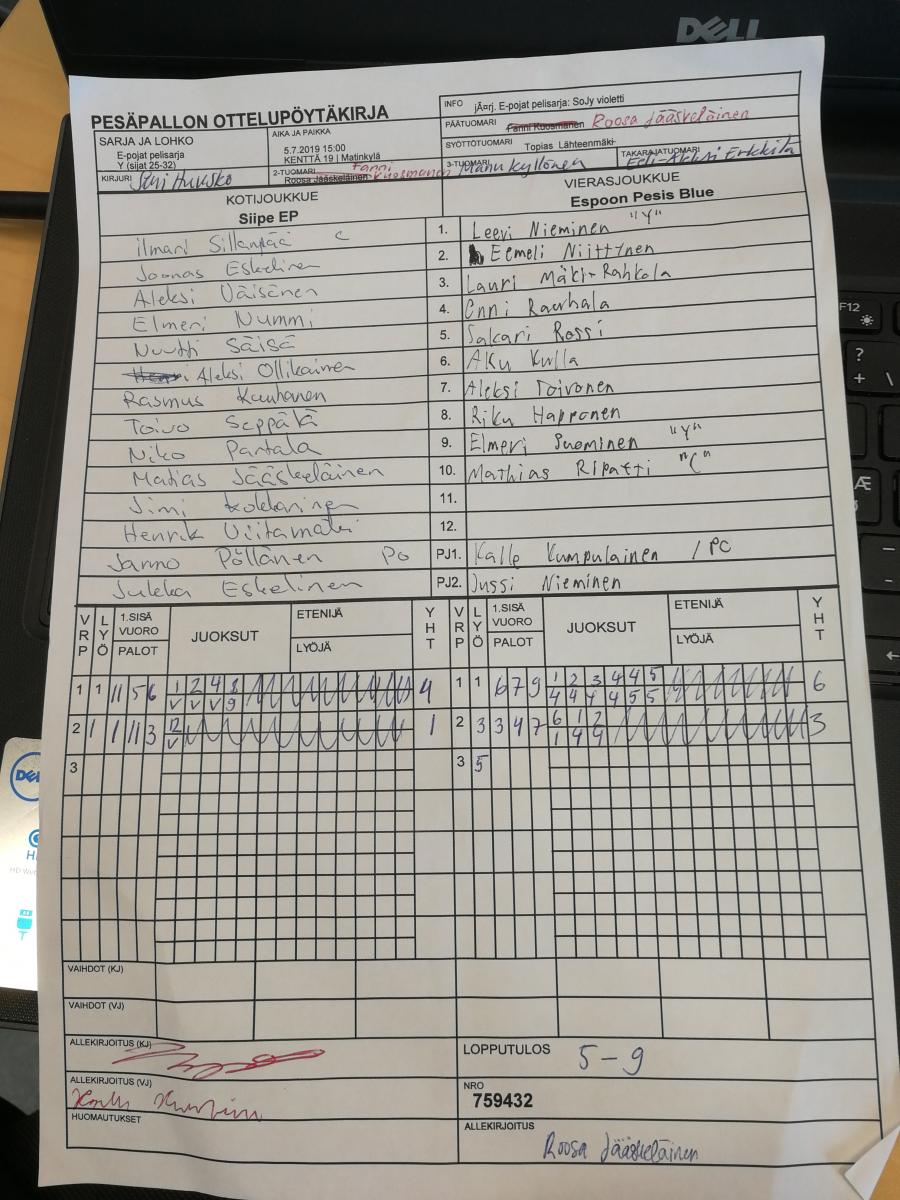 DELL
PESÄPALLON OTTELUPÖYTÄKIRJA
INFO jÃ¤rj. E-pojat pelisarja: SoJy violetti
PÄÄTUOMARI Fanni Kuosmanen Roosa Jääskeläinen
SARJA JA LOHKO
E-pojat pelisarja
Y (sijat 25-32)
AIKA JA PAIKKA
5.7.2019 15:00
KENTTÄ 19 | Matinkylä
SYÖTTÖTUOMARI Topias Lähteenmäki
KIRJURI
2-TUOMARI Roosa Jääskeläinen Fanni Kuosmanen
3-TUOMARI Manu Kyllönen
TAKARAJATUOMARI Eeli-Aleksi Erkkilä
KOTIJOUKKUE
Siipe EP
VIERASJOUKKUE
Espoon Pesis Blue
ilmari Sillanpää c 1. Leevi Nieminen "Y"
Joonas Eskelinen 2. Eemeli Niittynen
Aleksi Väisänen 3. Lauri Mäki-Rahkola
Elmeri Nummi 4. Onni Rauhala
Nuutti Säisä 5. Sakari Rossi
Aleksi Ollikainen 6. Aku Kulla
Rasmus Kauhanen 7. Aleksi Toivonen
Toivo Seppälä 8. Riku Happonen
Niko Partala 9. Elmeri Suominen "Y"
Matias Jääskeläinen 10. Mathias Ripatti "C"
Jimi 11.
Henrik Viitamäki 12.
Jarmo Pöllänen PO PJ1. Kalle Kumpulainen / PC
Jukka Eskelinen PJ2. Jussi Nieminen
VRP LYÖ 1.SISÄ VUORO PALOT JUOKSUT ETENIJÄ LYÖJÄ YHT VRP LYÖ 1.SISÄ VUORO PALOT JUOKSUT ETENIJÄ LYÖJÄ YHT
1 1 11 5 6 1 2 4 8 4 1 1 6 7 9 1 2 3 4 4 5 6
V V V 9 4 4 4 4 5 5
2 1 1 11 3 12 1 2 3 3 4 7 6 1 2 3
V 1 4 4
3 3 5
VAIHDOT (KJ)
VAIHDOT (VJ)
ALLEKIRJOITUS (KJ)
LOPPUTULOS 5-9
ALLEKIRJOITUS (VJ)
NRO
759432
HUOMAUTUKSET
ALLEKIRJOITUS
Roosa Jääskeläinen
F12